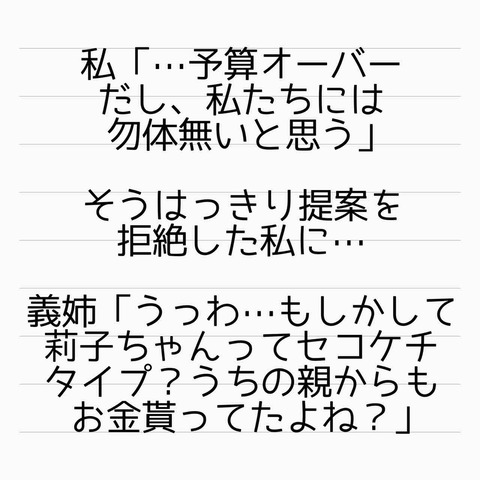 私「…予算オーバー
だし、私たちには
勿体無いと思う」
そうはっきり提案を
拒絶した私に…
義姉「うっわ…もしかして
莉子ちゃんってセコケチ
タイプ？うちの親からも
お金貰ってたよね？」